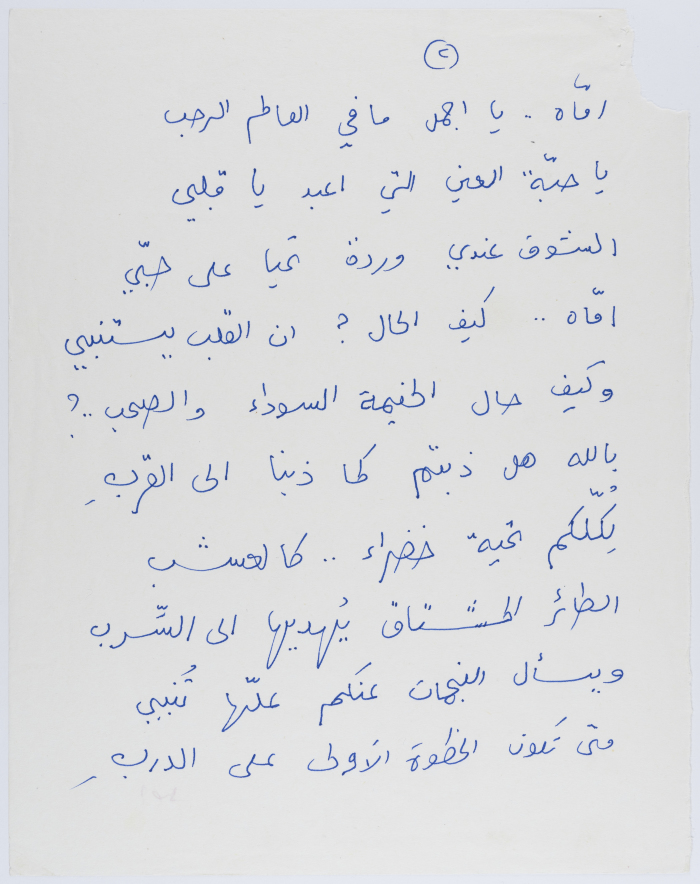 (٢)
امّاه .. يا اجمل ما في العالم الرحب
يا حبّة العين التي اعبد يا قلبي
الشوق عندي وردة تحيا على حبّي
امّاه .. كيف الحال ? ان القلب يستنبي
وكيف حال الخيمة السوداء والصحب ..?
بالله هل ذبتم كما ذبنا الى القربِ
لِكُلّكم تحية خضراء .. كالعشب
الطائر المشتاق يُهديها الى السّرب
ويسأل النجمات عنكم علّها تُنبي
متى تكون الخطوة الاولى على الدربِ